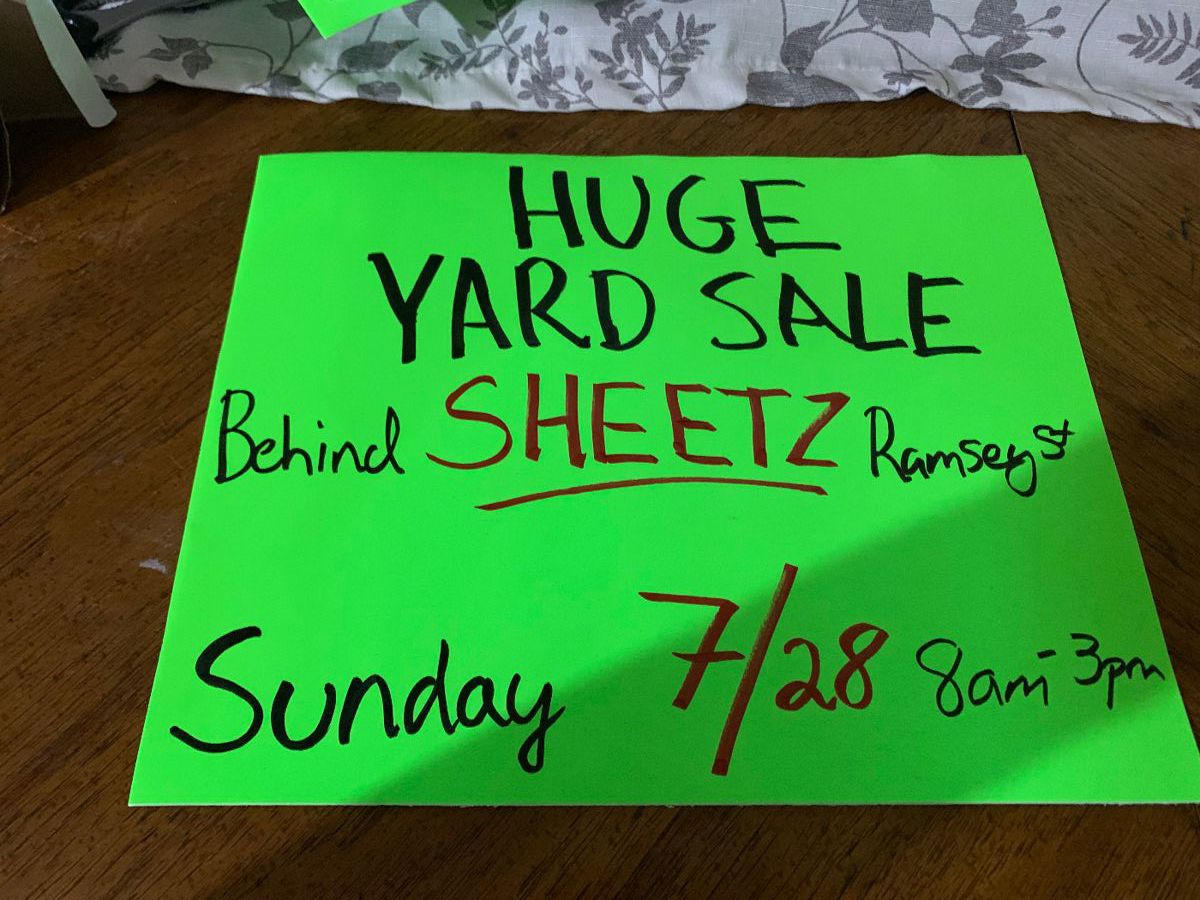 HUGE
YARD SALE
Behind SHEETZ Ramsey st
Sunday 7/28 8am-3pm